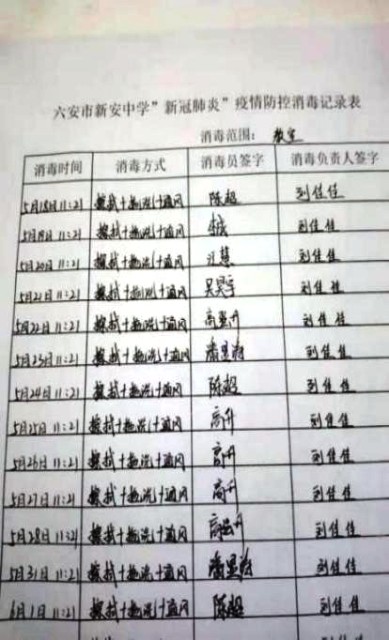 六安市新安中学"新冠肺炎"疫情防控消毒记录表
消毒范围： 教室
消毒时间 消毒方式 消毒员签字 消毒负责人签字
5月18日11:21 擦拭+拖洗+通风 陈超 刘佳佳
5月19日11:21 擦拭+拖洗+通风 刘佳佳
5月20日11:21 擦拭+拖洗+通风 江慧 刘佳佳
5月21日11:21 擦拭+拖洗+通风 刘佳佳
5月22日11:21 擦拭+拖洗+通风 刘佳佳
5月23日11:21 擦拭+拖洗+通风 刘佳佳
5月24日11:21 擦拭+拖洗+通风 陈超 刘佳佳
5月25日11:21 擦拭+拖洗+通风 高升 刘佳佳
5月26日11:21 擦拭+拖洗+通风 高升 刘佳佳
5月27日11:21 擦拭+拖洗+通风 高升 刘佳佳
5月28日11:21 擦拭+拖洗+通风 刘佳佳
5月31日11:21 擦拭+拖洗+通风 刘佳佳
6月1日11:21 擦拭+拖洗+通风 陈超 刘佳佳